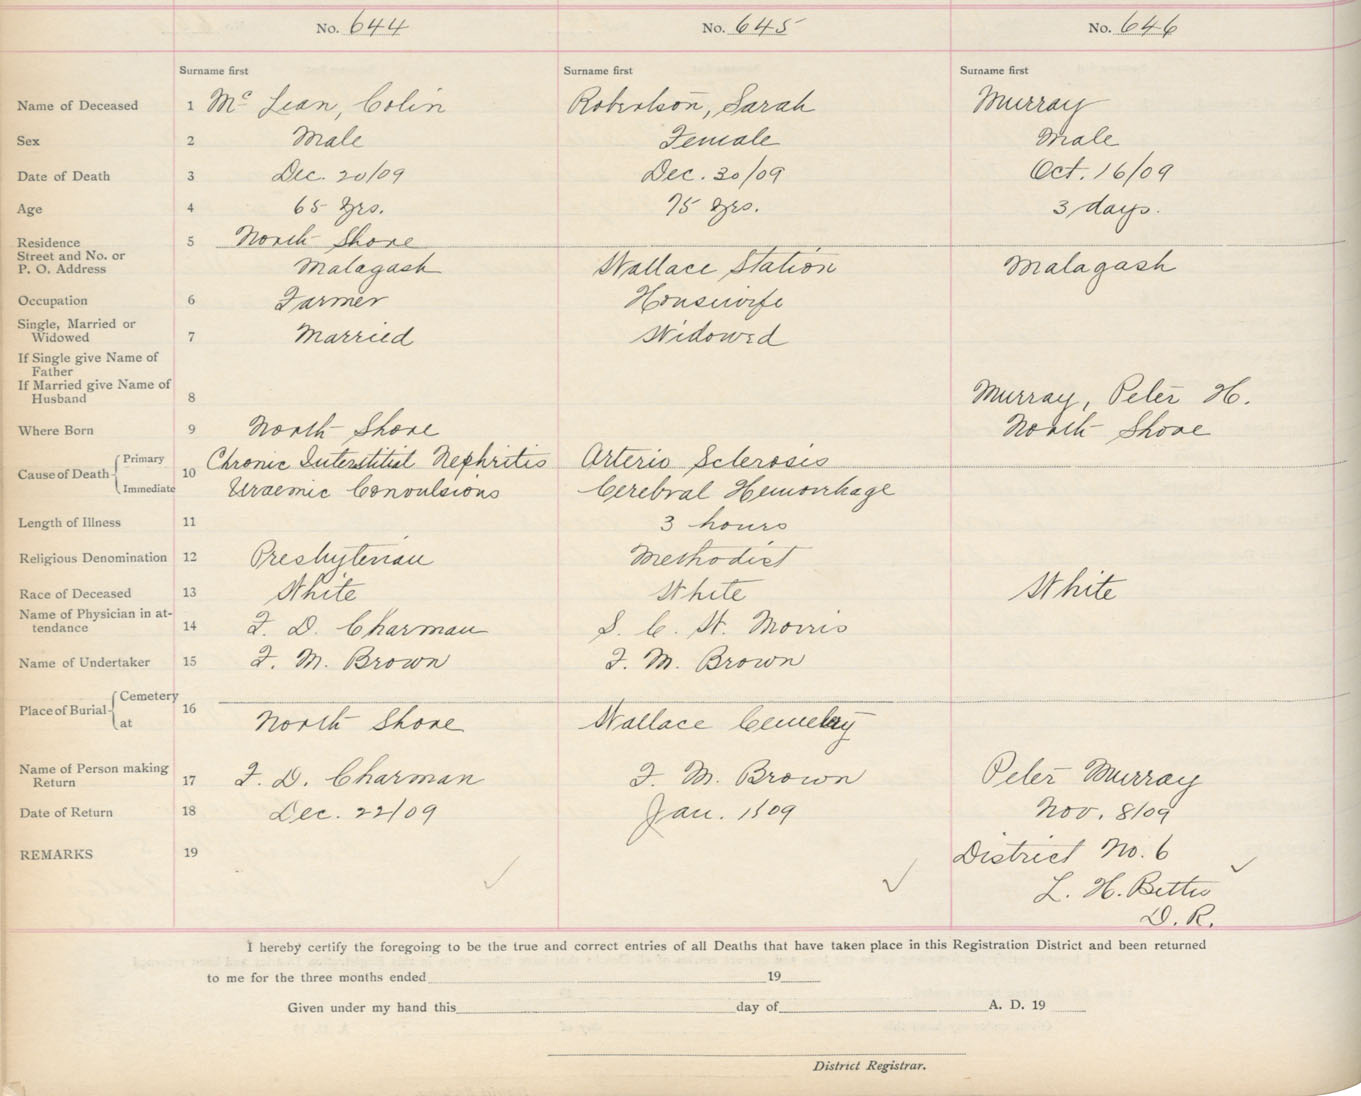 No. 644 No. 645 No. 646
Surname first Surname first Surname first
Name of Deceased 1 Mc Lean, Colin Robertson, Sarah Murray
Sex 2 Male Female Male
Date of Death 3 Dec. 20/09 Dec. 30/09 Oct. 16/09
Age 4 65 yrs. 75 yrs. 3 days.
Residence 5 North Shore
Street and No. or
P. O. Address Malagash Wallace Station Malagash
Occupation 6 Farmer Housewife
Single, Married or
Widowed 7 Married Widowed
If Single give Name of
Father
If Married give Name of
Husband 8 Murray, Peter H.
Where Born 9 North Shore North Shore
Cause of Death 10 Primary Chronic Interstitial Nephritis Arterio Sclerosis
Immediate Uraemic Convulsions Cerebral Hemorrhage
Length of Illness 11 3 hours
Religious Denomination 12 Presbyterian Methodist
Race of Deceased 13 White White White
Name of Physician in at-
tendance 14 F. D. Charman S. C. W. Morris
Name of Undertaker 15 F. M. Brown F. M. Brown
Place of Burial 16 Cemetery
at North Shore Wallace Cemetery
Name of Person making
Return 17 F. D. Charman F. M. Brown Peter Murray
Date of Return 18 Dec. 22/09 Jan. 1/09 Nov. 8/09
REMARKS 19 District No. 6
L. H. Betts
D. R.
I hereby certify the foregoing to be the true and correct entries of all Deaths that have taken place in this Registration District and been returned
to me for the three months ended 19
Given under my hand this day of A. D. 19
District Registrar.